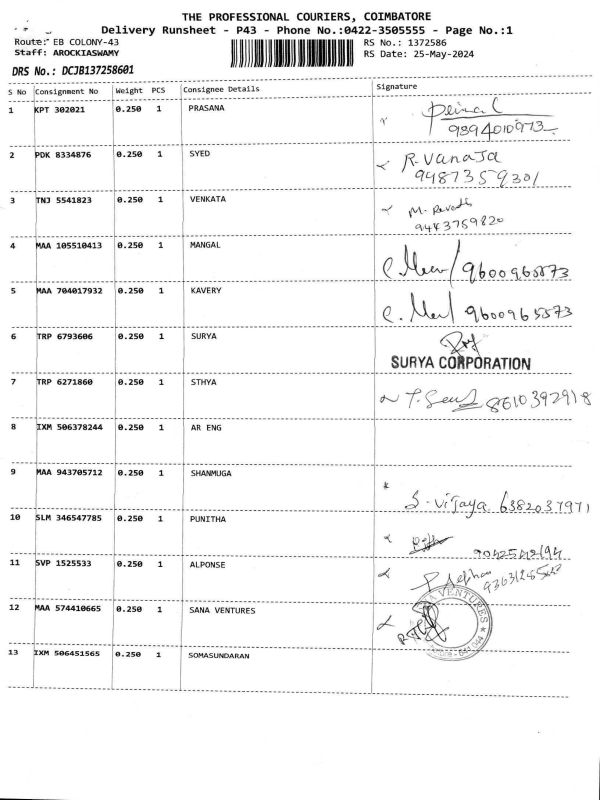 THE PROFESSIONAL COURIERS, COIMBATORE
Delivery Runsheet - P43 - Phone No.:0422-3505555 - Page No.:1
Route: EB COLONY-43
RS No.: 1372586
Staff: AROCKIASWAMY
RS Date: 25-May-2024
DRS No.: DCJB137258601
S No Consignment No Weight PCS Consignee Details Signature
1 KPT 302021 0.250 1 PRASANA
9394010973
2 PDK 8334876 0.250 1 SYED R. VANAJA
9487359301
3 TNJ 5541823 0.250 1 VENKATA M. Revathi
9443759820
4 MAA 105510413 0.250 1 MANGAL
9600965573
5 MAA 704017932 0.250 1 KAVERY
9600965573
6 TRP 6793606 0.250 1 SURYA
SURYA CORPORATION
7 TRP 6271860 0.250 1 STHYA
8610392918
8 IXM 506378244 0.250 1 AR ENG
9 MAA 943705712 0.250 1 SHANMUGA
S. Vijaya 6382037971
10 SLM 346547785 0.250 1 PUNITHA
11 SVP 1525533 0.250 1 ALPONSE
12 MAA 574410665 0.250 1 SANA VENTURES
VENTURES
13 IXM 506451565 0.250 1 SOMASUNDARAN